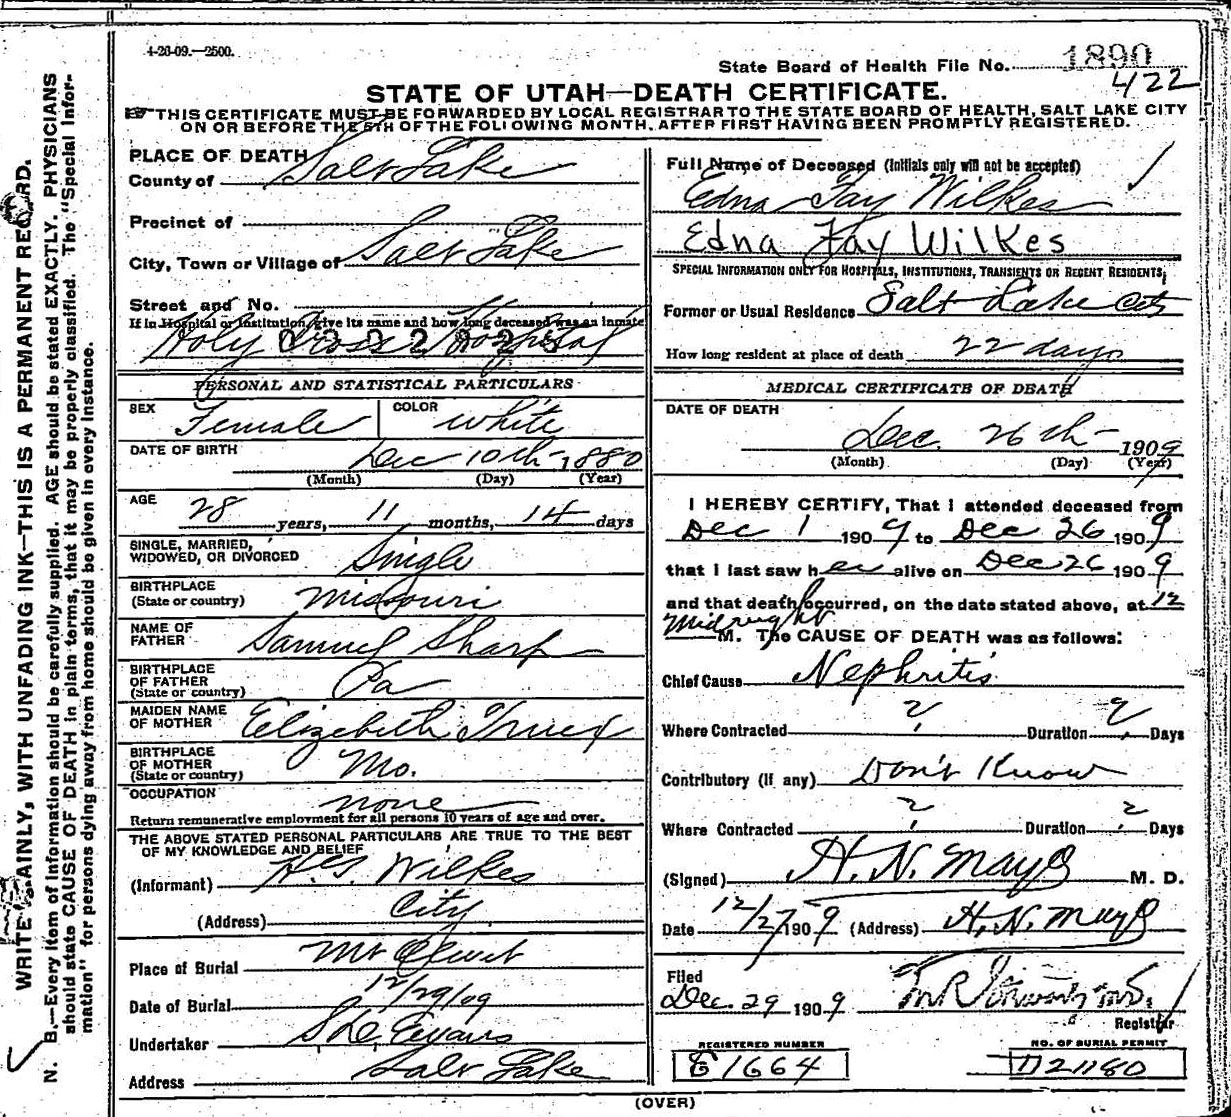 4-26-09.—2500.
State Board of Health File No. 1890
422
STATE OF UTAH—DEATH CERTIFICATE.
THIS CERTIFICATE MUST BE FORWARDED BY LOCAL REGISTRAR TO THE STATE BOARD OF HEALTH, SALT LAKE CITY
ON OR BEFORE THE 5TH OF THE FOLLOWING MONTH, AFTER FIRST HAVING BEEN PROMPTLY REGISTERED.
WRITE PLAINLY, WITH UNFADING INK—THIS IS A PERMANENT RECORD.
N. B.—Every item of information should be carefully supplied. AGE should be stated EXACTLY. PHYSICIANS
should state CAUSE OF DEATH in plain terms, that it may be properly classified. The "Special Infor-
mation" for persons dying away from home should be given in every instance.
PLACE OF DEATH
County of Salt Lake
Precinct of
City, Town or Village of Salt Lake
Street and No.
If in Hospital or Institution, give its name and how long deceased was an inmate
Holy Cross Hospital
PERSONAL AND STATISTICAL PARTICULARS
SEX Female COLOR white
DATE OF BIRTH Dec 10th 1880
(Month) (Day) (Year)
AGE 28 years, 11 months, 14 days
SINGLE, MARRIED,
WIDOWED, OR DIVORCED Single
BIRTHPLACE
(State or country) Missouri
NAME OF
FATHER Samuel Sharp
BIRTHPLACE
OF FATHER
(State or country) Pa
MAIDEN NAME
OF MOTHER Elizabeth Truex
BIRTHPLACE
OF MOTHER
(State or country) Mo.
OCCUPATION none
Return remunerative employment for all persons 10 years of age and over.
THE ABOVE STATED PERSONAL PARTICULARS ARE TRUE TO THE BEST
OF MY KNOWLEDGE AND BELIEF
(Informant) Wilkes
(Address) City
Place of Burial Mt Olivet
Date of Burial 12/29/09
Undertaker Evans
Address Salt Lake
Full Name of Deceased (Initials only will not be accepted)
Edna Fay Wilkes
Edna Fay Wilkes
SPECIAL INFORMATION ONLY FOR HOSPITALS, INSTITUTIONS, TRANSIENTS OR RECENT RESIDENTS,
Former or Usual Residence Salt Lake City
How long resident at place of death 22 days
MEDICAL CERTIFICATE OF DEATH
DATE OF DEATH
Dec. 26th 1909
(Month) (Day) (Year)
I HEREBY CERTIFY, That I attended deceased from
Dec 1 1909 to Dec 26 1909
that I last saw her alive on Dec 26 1909
and that death occurred, on the date stated above, at 12
midnight M. The CAUSE OF DEATH was as follows:
Chief Cause Nephritis
Where Contracted ? Duration ? Days
Contributory (if any) Don't Know
Where Contracted ? Duration ? Days
(Signed) H. N. Mayo M. D.
Date 12/27 1909 (Address) H. N. Mayo
Filed
Dec. 29 1909
Registrar
REGISTERED NUMBER
E 1664
NO. OF BURIAL PERMIT
(OVER)